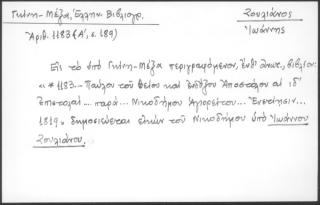 Γκίνη-Μέξα, Ἑλλην. Βιβλιογρ.
Ἀριθ. 1183 (Α', σ. 189)
Σουλιάνος
Ἰωάννης
Εἰς τὸ ὑπὸ Γκίνη-Μέξα περιγραφόμενον, ἔνθ' ἄνωτ., βιβλίον:
«*1183.- Παύλου τοῦ θείου καὶ ἐνδόξου Ἀποστόλου αἱ ιδ'
Ἐπιστολαί... παρὰ... Νικοδήμου Ἁγιορείτου... Ἐνετίησιν...
1819» δημοσιεύεται εἰκὼν τοῦ Νικοδήμου ὑπὸ Ἰωάννου
Σουλιάνου.